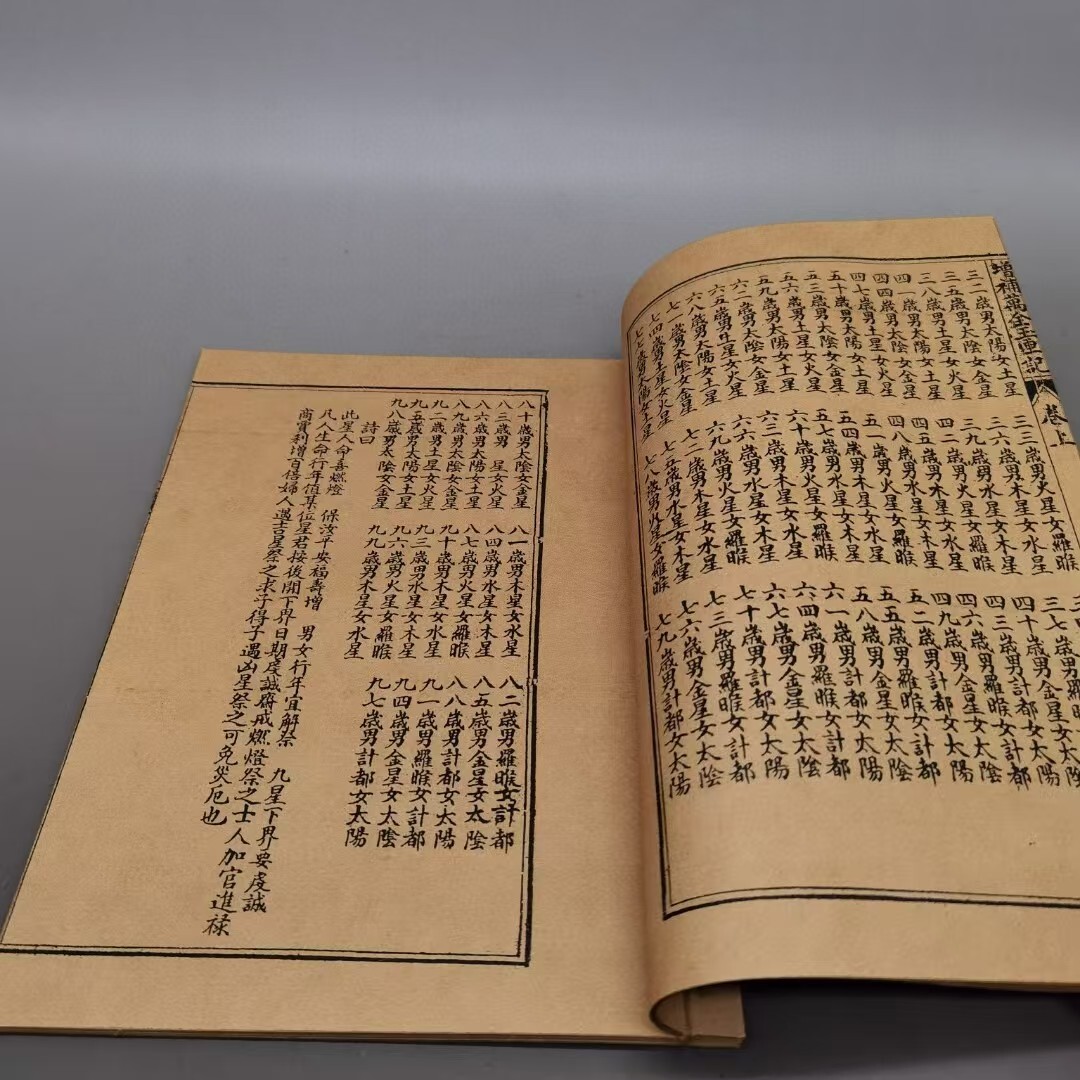 增補萬全玉匣記 卷上
三二歲男太陽女土星 三三歲男火星女羅睺
三五歲男太陰女金星 三六歲男木星女水星 三七歲男羅睺女計都
三八歲男土星女火星 三九歲男水星女木星 四十歲男金星女太陰
四一歲男太陽女土星 四二歲男火星女羅睺 四三歲男計都女太陽
四四歲男太陰女金星 四五歲男木星女水星 四六歲男羅睺女計都
四七歲男土星女火星 四八歲男水星女木星 四九歲男金星女太陰
五十歲男太陽女土星 五一歲男火星女羅睺 五二歲男計都女太陽
五三歲男太陰女金星 五四歲男木星女水星 五五歲男羅睺女計都
五六歲男土星女火星 五七歲男水星女木星 五八歲男金星女太陰
五九歲男太陽女土星 六十歲男火星女羅睺 六一歲男計都女太陽
六二歲男太陰女金星 六三歲男木星女水星 六四歲男羅睺女計都
六五歲男土星女火星 六六歲男水星女木星 六七歲男金星女太陰
六八歲男太陽女土星 六九歲男火星女羅睺 七十歲男計都女太陽
七一歲男太陰女金星 七二歲男木星女水星 七三歲男羅睺女計都
七四歲男土星女火星 七五歲男水星女木星 七六歲男金星女太陰
七七歲男太陽女土星 七八歲男火星女羅睺 七九歲男計都女太陽
八十歲男太陰女金星 八一歲男木星女水星 八二歲男羅睺女計都
八三歲男 星女火星 八四歲男水星女木星 八五歲男金星女太陰
八六歲男太陽女土星 八七歲男火星女羅睺 八八歲男計都女太陽
八九歲男太陰女金星 九十歲男木星女水星 九一歲男羅睺女計都
九二歲男土星女火星 九三歲男水星女木星 九四歲男金星女太陰
九五歲男太陽女土星 九六歲男火星女羅睺 九七歲男計都女太陽
九八歲男太陰女金星 九九歲男木星女水星
詩曰
此星人命喜燃燈 保汝平安福壽增 男女行年宜解祭 九星下界要虔誠
凡人生命行年值某位星君按後開下界日期虔誠齋戒燃燈祭之士人加官進祿
商賈利增百倍婦人遇吉星祭之求子得子遇凶星祭之可免災厄也